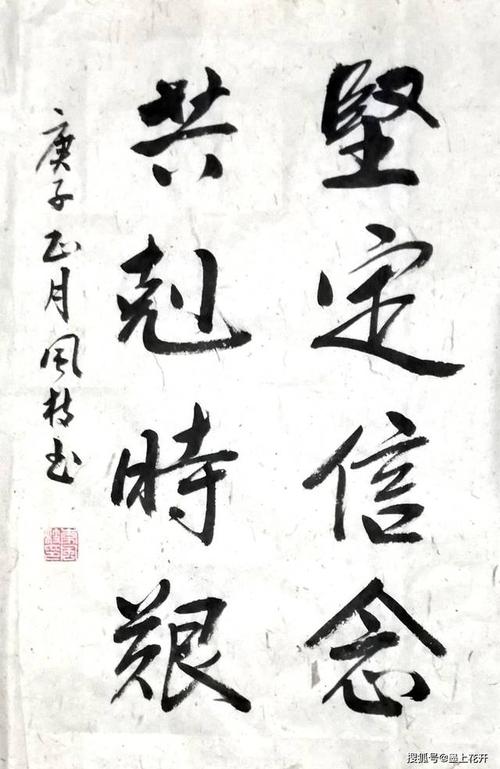 堅定信念
共剋時艱
庚子正月風枝书
搜狐号@墨上花开